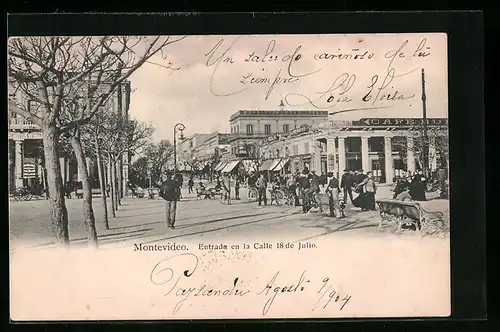 Un saludo cariñoso de tu
siempre
Lola Elvira
CAFE
Montevideo. Entrada en la Calle 18 de Julio.
Paysandu Agosto 9/904